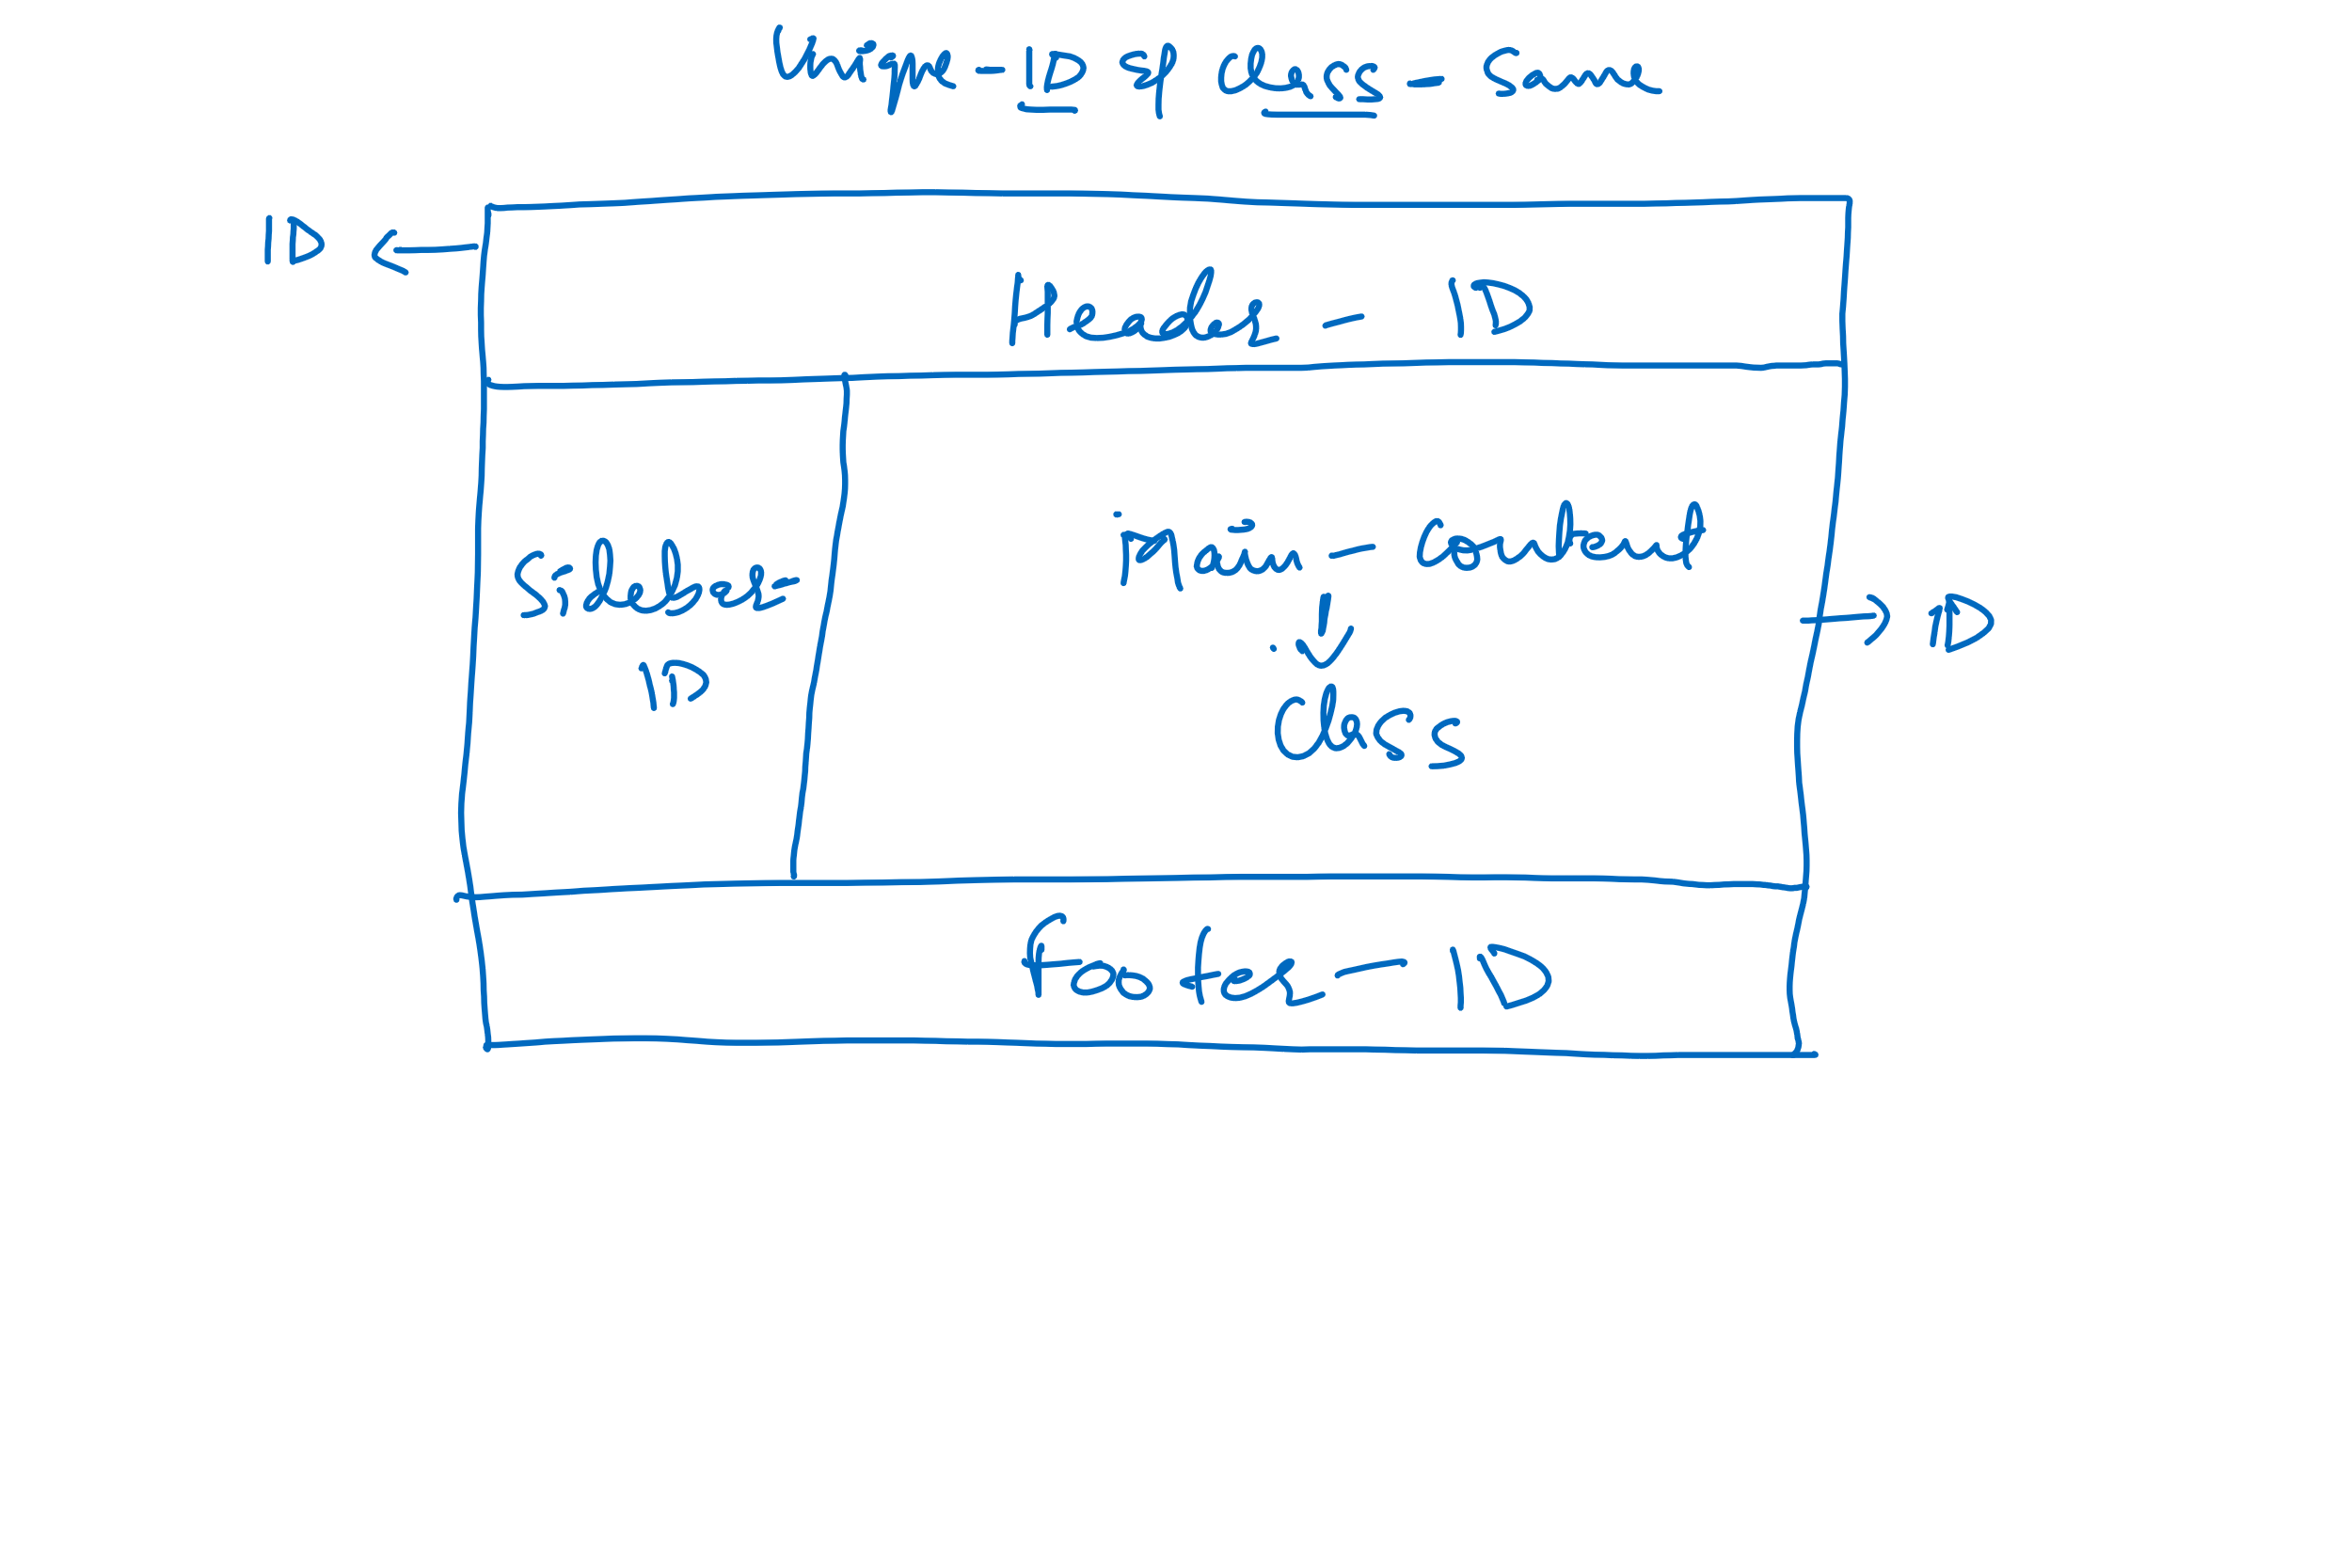 Unique - ID & Class - Same
ID
Header - ID
Sidebar -
ID
main - content
ID
Class
Footer - ID